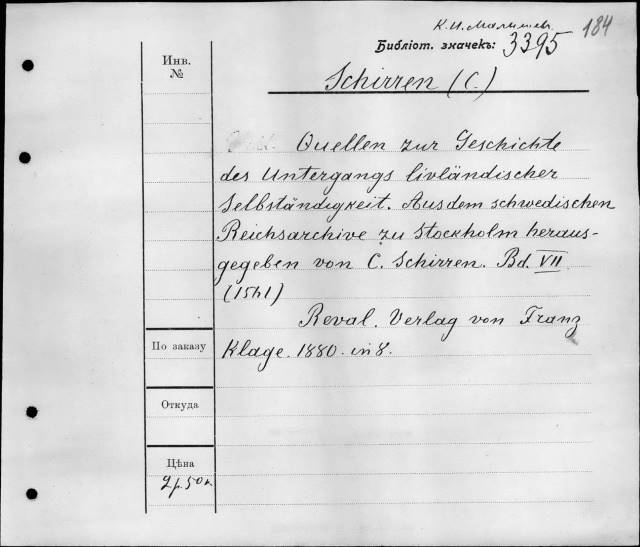 К.И. Малышев
184
Библіот. значекъ: 3395
Инв.
№
Schirren (C.)
Quellen zur Geschichte
des Untergangs livländischer
Selbständigkeit. Aus dem schwedischen
Reichsarchive zu Stockholm heraus-
gegeben von C. Schirren. Bd. VII
(1561)
Reval. Verlag von Franz
Kluge. 1880. in 8.
По заказу
Откуда
Цѣна
2 р. 50 к